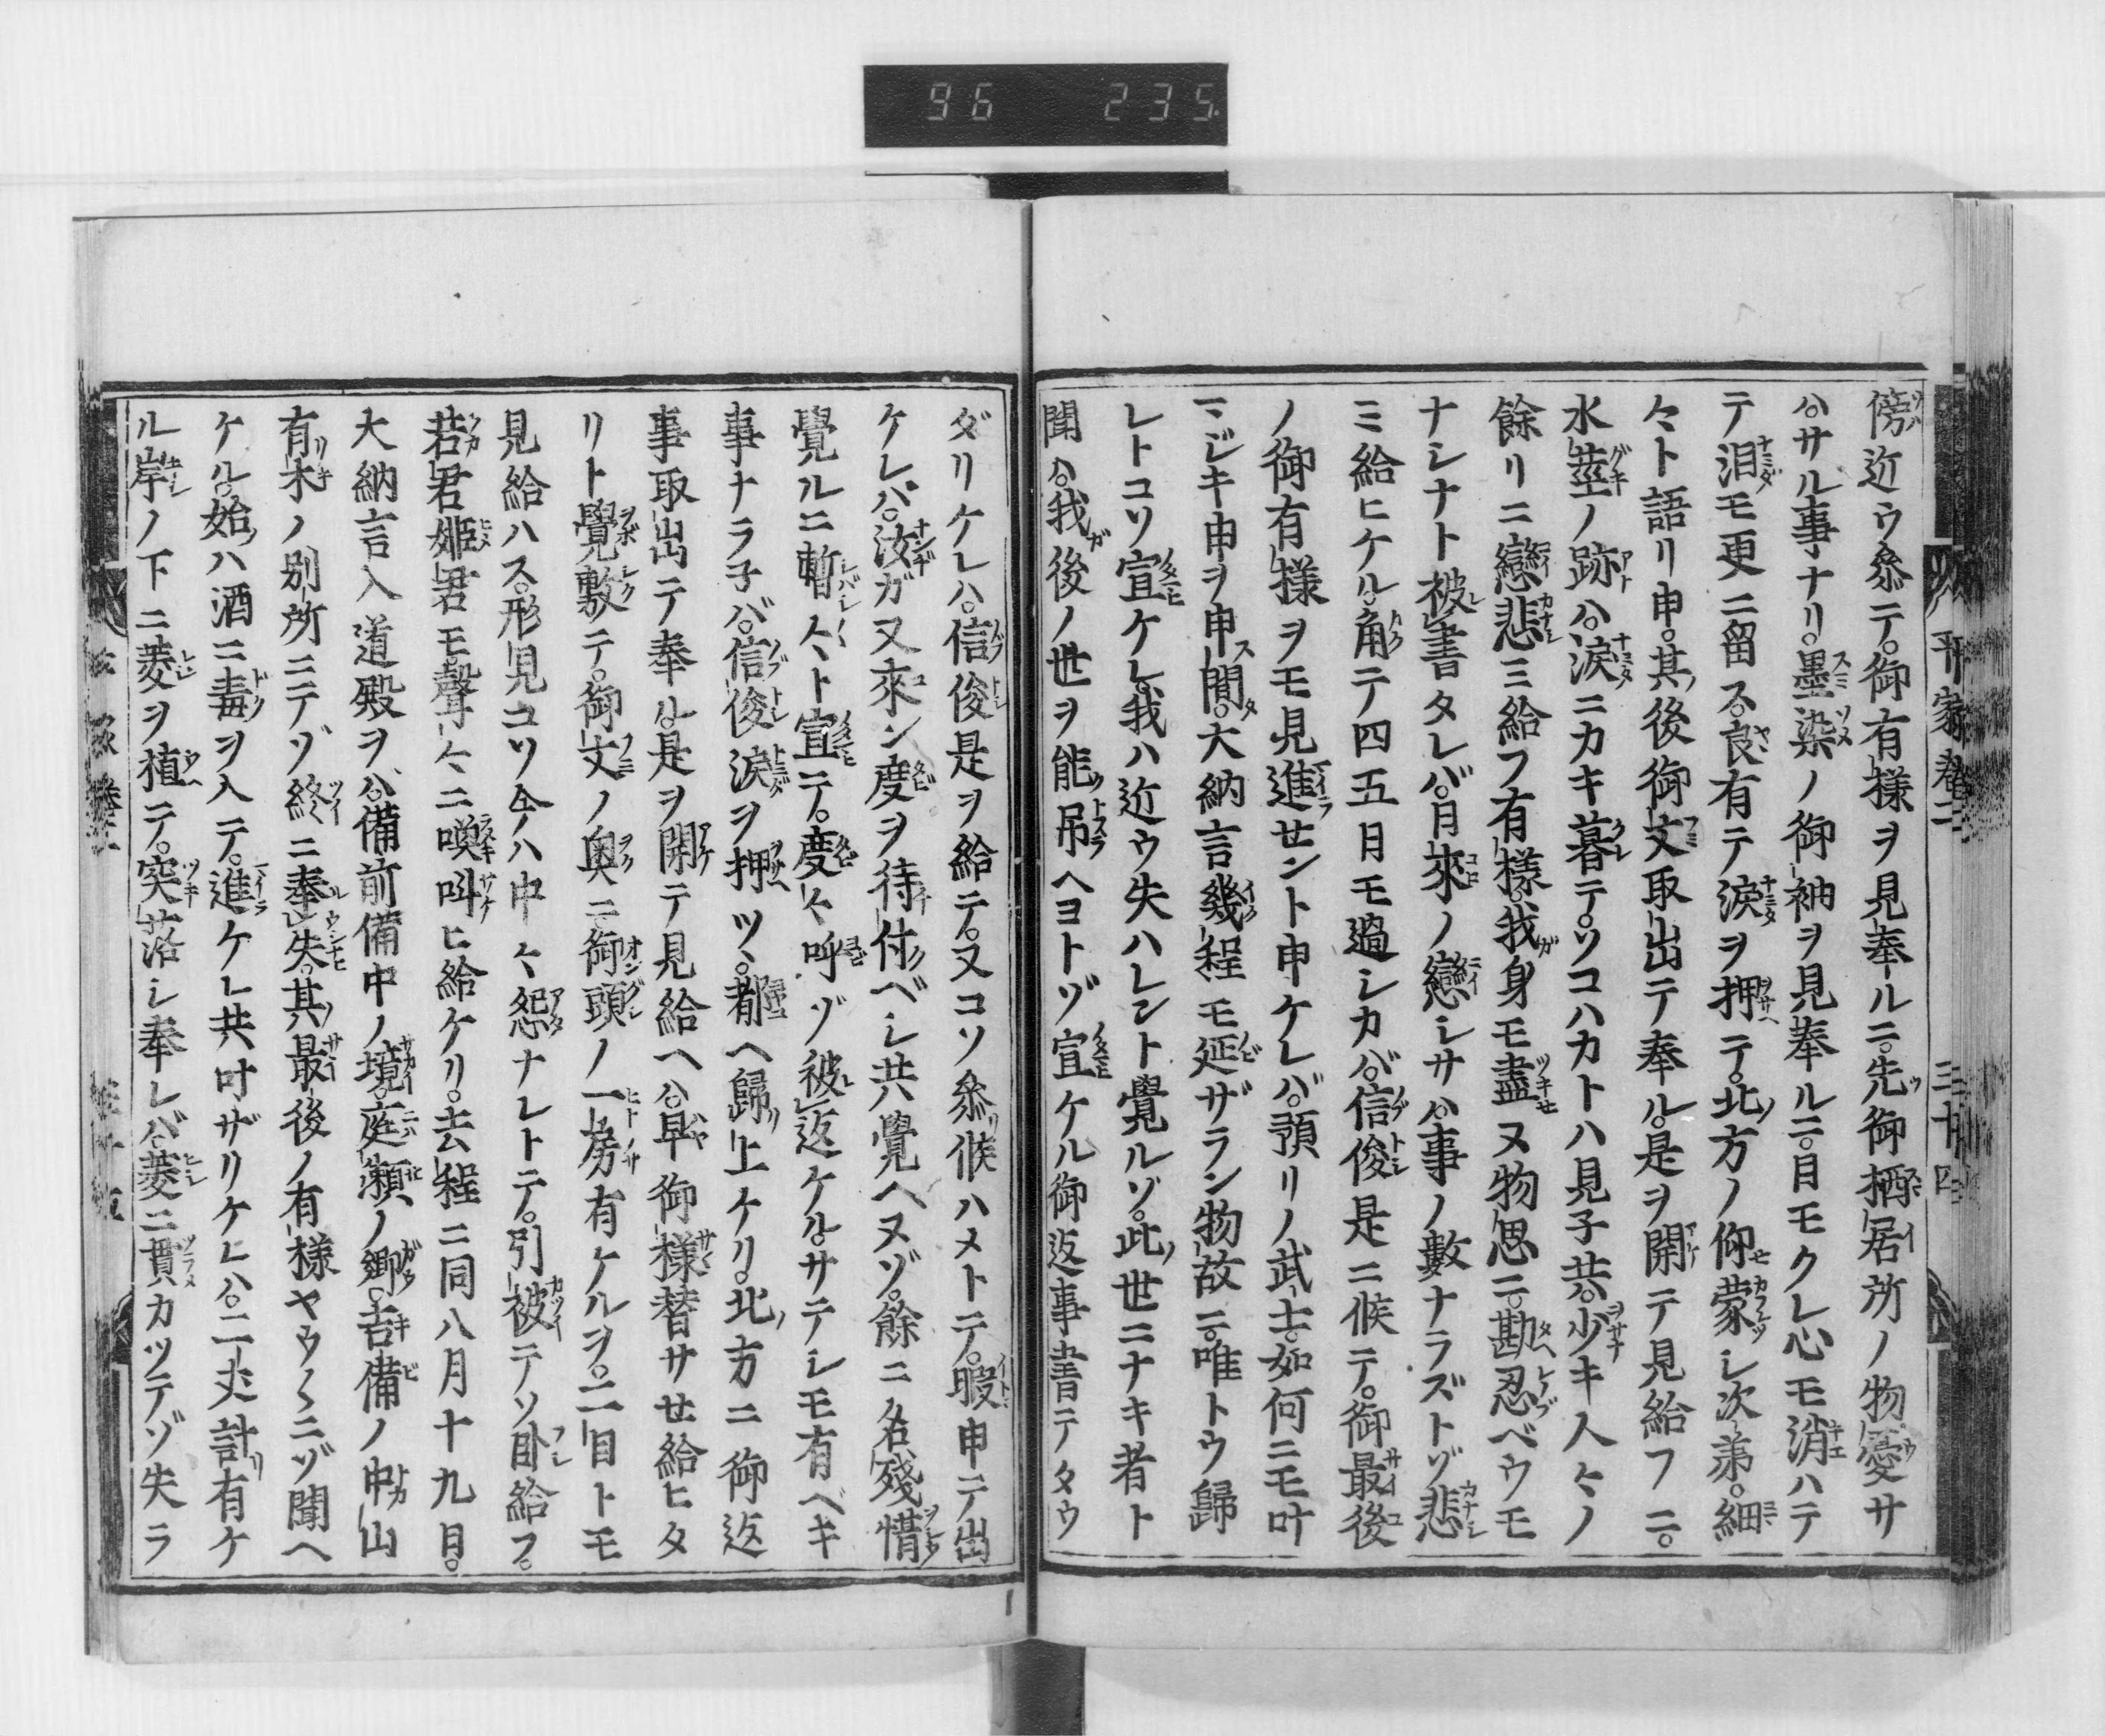 96 235
平家巻二 三十四
傍近ウ參テ。御有樣ヲ見奉ルニ。先御栖居所ノ物憂サ
ハ。サル事ナリ。墨染ノ御袖ヲ見奉ルニ。目モクレ心モ消ハテ
テ泪モ更ニ留ス。良有テ涙ヲ押テ。北方ノ仰蒙シ次第。細
々ト語リ申。其後御文取出テ奉ル。是ヲ開テ見給フニ。
水莖ノ跡ハ。涙ニカキ暮テ。ソコハカトハ見子共。少キ人々ノ
餘リニ戀悲ミ給フ有樣。我身モ盡セヌ物思ニ。勘忍ベウモ
ナシナト被書タレバ。日來ノ戀シサハ。事ノ數ナラズトゾ悲
ミ給ヒケル。角テ四五日モ過シカバ。信俊是ニ候テ。御最後
ノ御有樣ヲモ見進セント申ケレバ。預リノ武士。如何ニモ叶
マジキ由ヲ申ス間。大納言幾程モ延ザラン物故ニ。唯トウ歸
レトコソ宣ケレ。我ハ近ウ失ハレント覺ルゾ。此世ニナキ者ト
聞ハ。我後ノ世ヲ能吊ヘヨトゾ宣ケル御返事書テタウ
ダリケレハ。信俊是ヲ給テ。又コソ參候ハメトテ。暇申テ出
ケレバ。汝ガ又來ン度ヲ待付ベシ共覺ヘヌゾ。餘ニ名殘惜
覺ルニ暫々ト宣テ。度々呼ゾ被返ケル。サテシモ有ベキ
事ナラ子バ。信俊涙ヲ押ツヽ。都ヘ歸上ケリ。北方ニ御返
事取出テ奉ル。是ヲ開テ見給ヘハ。早御樣替サセ給ヒタ
リト覺敷テ。御文ノ奥ニ御頭ノ一房有ケルヲ。二目トモ
見給ハス。形見コソ今ハ中々怨ナレトテ。引被テソ臥給フ。
若君姫君モ。聲々ニ喚叫ヒ給ケリ。去程ニ同八月十九日。
大納言入道殿ヲバ。備前備中ノ境。庭瀬ノ郷。吉備ノ中山
有木ノ別所ニテゾ終ニ奉失。其最後ノ有樣ヤウ〳〵ニゾ聞ヘ
ケル。始ハ酒ニ毒ヲ入テ。進ケレ共叶ザリケレハ。二丈計有ケ
ル岸ノ下ニ菱ヲ植テ。突落シ奉レバ。菱ニ貫カツテゾ失ラ